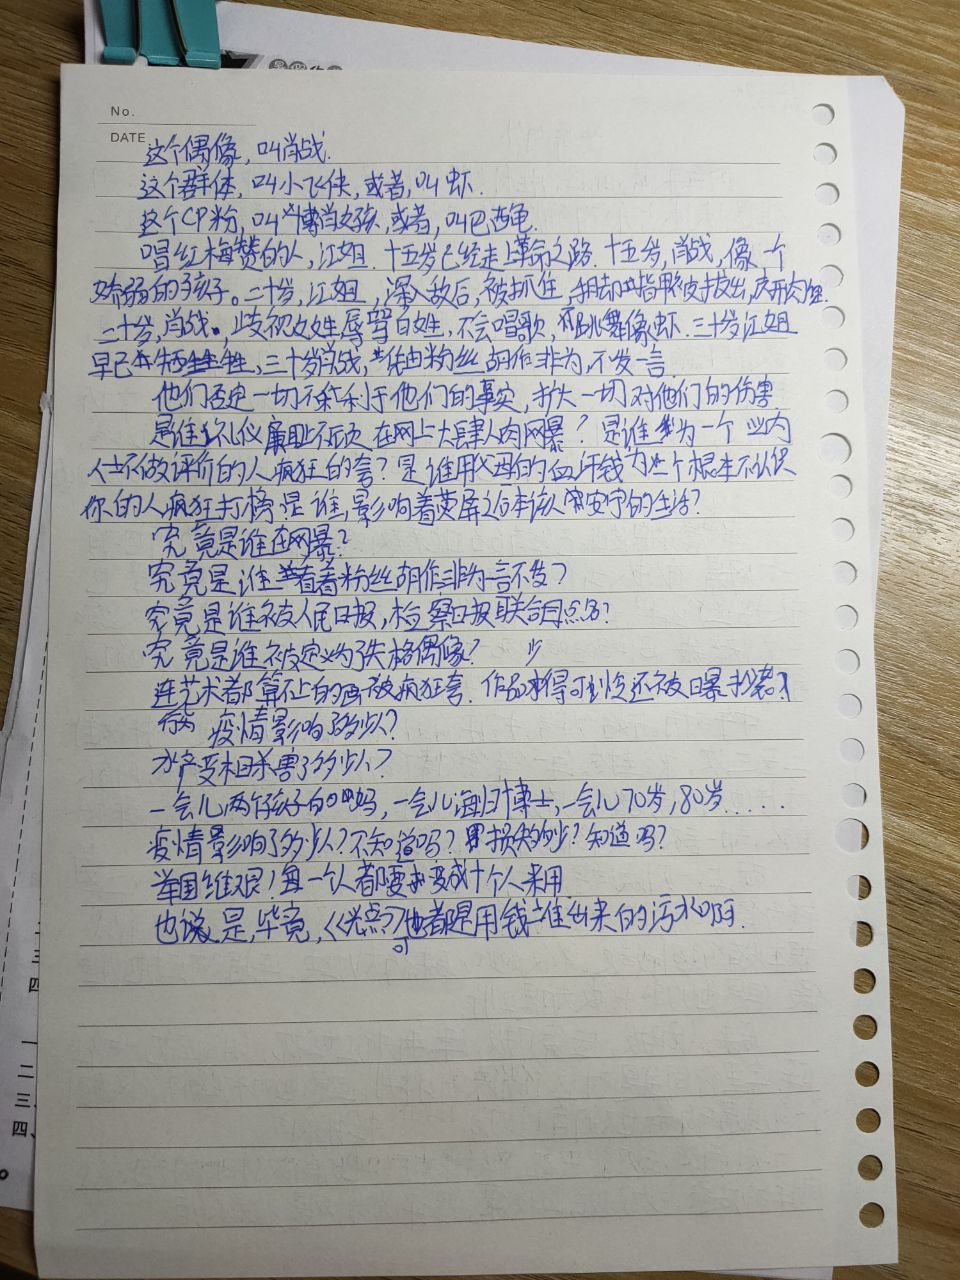 No.
DATE
这个偶像，叫肖战.
这个群体，叫小飞侠，或者，叫虾.
这个CP粉，叫博肖女孩，或者，叫巴西龟.
唱红梅赞的人，江姐.十五岁已经走上革命之路.十五岁，肖战，像一个
娇弱的孩子。二十岁，江姐，深入敌后，被抓住，指甲被拔出，
二十岁，肖战。歧视女性辱骂百姓，不会唱歌，跳舞像虾.三十岁江姐
早已牺牲，三十岁肖战，任由粉丝胡作非为，不发一言.
他们否定一切不利于他们的事实，扩大一切对他们的伤害
是谁礼仪廉耻不顾在网上大肆人肉网暴？是谁为一个业内
人士不做评价的人疯狂的夸？是谁用父母的血汗钱为一个根本不认识
你的人疯狂打榜.是谁，影响着荧屏之后本该安宁的生活？
究竟是谁在网暴？
究竟是谁看着粉丝胡作非为一言不发？
究竟是谁被人民日报，检察日报联合点名？
究竟是谁被定义为了失格偶像？
连艺术都算不上的画被疯狂夸.作品少得可怜还被曝抄袭？
疫情影响了多少人？
水产受相杀害了多少人？
一会儿两个孩子的妈妈，一会儿海归博士，一会儿70岁，80岁....
疫情影响了多少人？不知道吗？损失多少？知道吗？
举国维艰！每一个人都要变成十个人来用
也说是，毕竟，《光点》可都是用钱堆出来的污水啊.
一
二
三、
四、